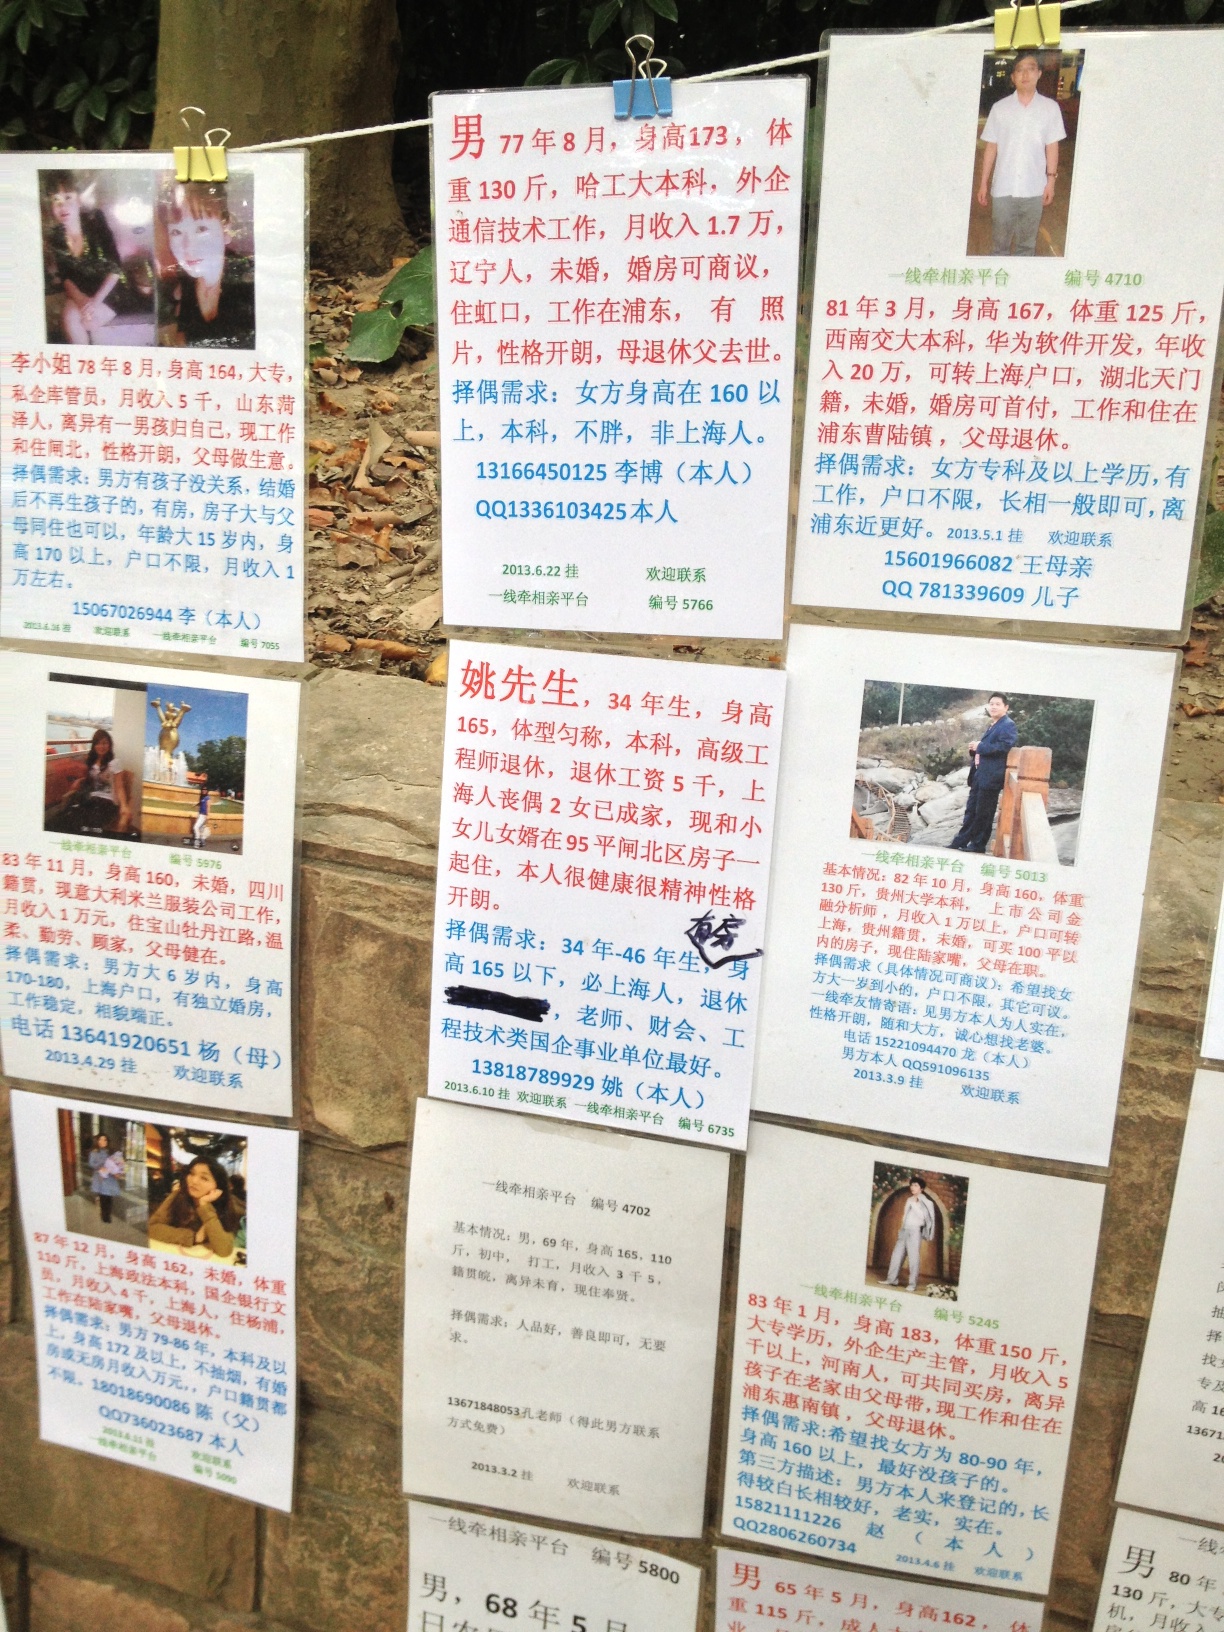 李小姐 78 年 8 月，身高 164，大专，
私企库管员，月收入 5 千，山东菏
泽人，离异有一男孩归自己，现工作
和住闸北，性格开朗，父母做生意。
择偶需求：男方有孩子没关系，结婚
后不再生孩子的，有房，房子大与父
母同住也可以，年龄大 15 岁内，身
高 170 以上，户口不限，月收入 1
万左右。
15067026944 李（本人）
2013.6.16 挂 欢迎联系 一线牵相亲平台 编号 7055
男 77 年 8 月，身高173，体
重 130 斤，哈工大本科，外企
通信技术工作，月收入 1.7 万，
辽宁人，未婚，婚房可商议，
住虹口，工作在浦东，有 照
片，性格开朗，母退休父去世。
择偶需求：女方身高在 160 以
上，本科，不胖，非上海人。
13166450125 李博（本人）
QQ1336103425 本人
2013.6.22 挂 欢迎联系
一线牵相亲平台 编号 5766
一线牵相亲平台 编号 4710
81 年 3 月，身高 167，体重 125 斤，
西南交大本科，华为软件开发，年收
入 20 万，可转上海户口，湖北天门
籍，未婚，婚房可首付，工作和住在
浦东曹陆镇，父母退休。
择偶需求：女方专科及以上学历，有
工作，户口不限，长相一般即可，离
浦东近更好。2013.5.1 挂 欢迎联系
15601966082 王母亲
QQ 781339609 儿子
一线牵相亲平台 编号 5976
83 年 11 月，身高 160，未婚，四川
籍贯，现意大利米兰服装公司工作，
月收入 1 万元，住宝山牡丹江路，温
柔、勤劳、顾家，父母健在。
择偶需求：男方大 6 岁内，身高
170-180，上海户口，有独立婚房，
工作稳定，相貌端正。
电话 13641920651 杨（母）
2013.4.29 挂 欢迎联系
姚先生，34 年生，身高
165，体型匀称，本科，高级工
程师退休，退休工资 5 千，上
海人丧偶 2 女已成家，现和小
女儿女婿在 95 平闸北区房子一
起住，本人很健康很精神性格
开朗。
有房
择偶需求：34 年-46 年生，身
高 165 以下，必上海人，退休
，老师、财会、工
程技术类国企事业单位最好。
13818789929 姚（本人）
2013.6.10 挂 欢迎联系 一线牵相亲平台 编号 6735
一线牵相亲平台 编号 5013
基本情况：82 年 10 月，身高 160，体重
130 斤，贵州大学本科， 上市公司金
融分析师，月收入 1 万以上，户口可转
上海，贵州籍贯，未婚，可买 100 平以
内的房子，现住陆家嘴，父母在职。
择偶需求（具体情况可商议）：希望找女
方大一岁到小的，户口不限，其它可议。
一线牵友情寄语：见男方本人为人实在，
性格开朗，随和大方，诚心想找老婆。
电话 15221094470 龙（本人）
男方本人 QQ591096135
2013.3.9 挂 欢迎联系
87 年 12 月，身高 162，未婚，体重
110 斤，上海政法本科，国企银行文
员，月收入 4 千，上海人，住杨浦，
工作在陆家嘴，父母退休。
择偶需求：男方 79-86 年，本科及以
上，身高 172 及以上，不抽烟，有婚
房或无房月收入万元，，户口籍贯都
不限。18018690086 陈（父）
QQ736023687 本人
2013.6.11 挂 欢迎联系
一线牵相亲平台 编号 5090
一线牵相亲平台 编号 4702
基本情况：男，69 年，身高 165，110
斤，初中， 打工，月收入 3 千 5，
籍贯皖，离异未育，现住奉贤。
择偶需求：人品好，善良即可，无要
求。
13671848053孔老师（得此男方联系
方式免费）
2013.3.2 挂 欢迎联系
一线牵相亲平台 编号 5245
83 年 1 月，身高 183，体重 150 斤，
大专学历，外企生产主管，月收入 5
千以上，河南人，可共同买房，离异
孩子在老家由父母带，现工作和住在
浦东惠南镇，父母退休。
择偶需求：希望找女方为 80-90 年，
身高 160 以上，最好没孩子的。
第三方描述：男方本人来登记的，长
得较白长相较好，老实，实在。
15821111226 赵 （ 本 人 ）
QQ2806260734 2013.4.6 挂 欢迎联系
一线牵相亲平台 编号 5800
男，68 年 5 月
男 65 年 5 月，身高162，体
重 115 斤，成人
男 80 年
130 斤，大专
机，月收入